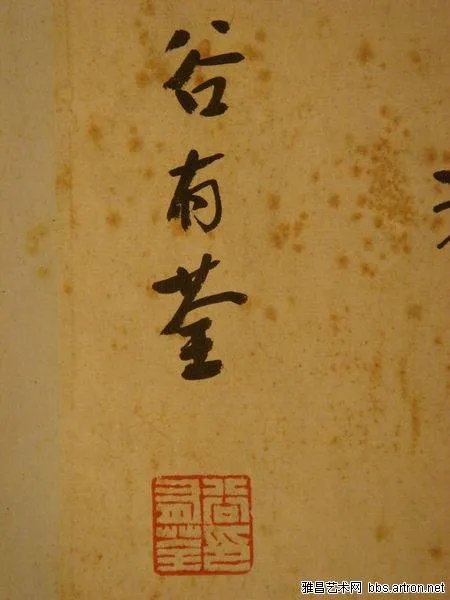 谷有荃
雅昌艺术网 bbs.artron.net